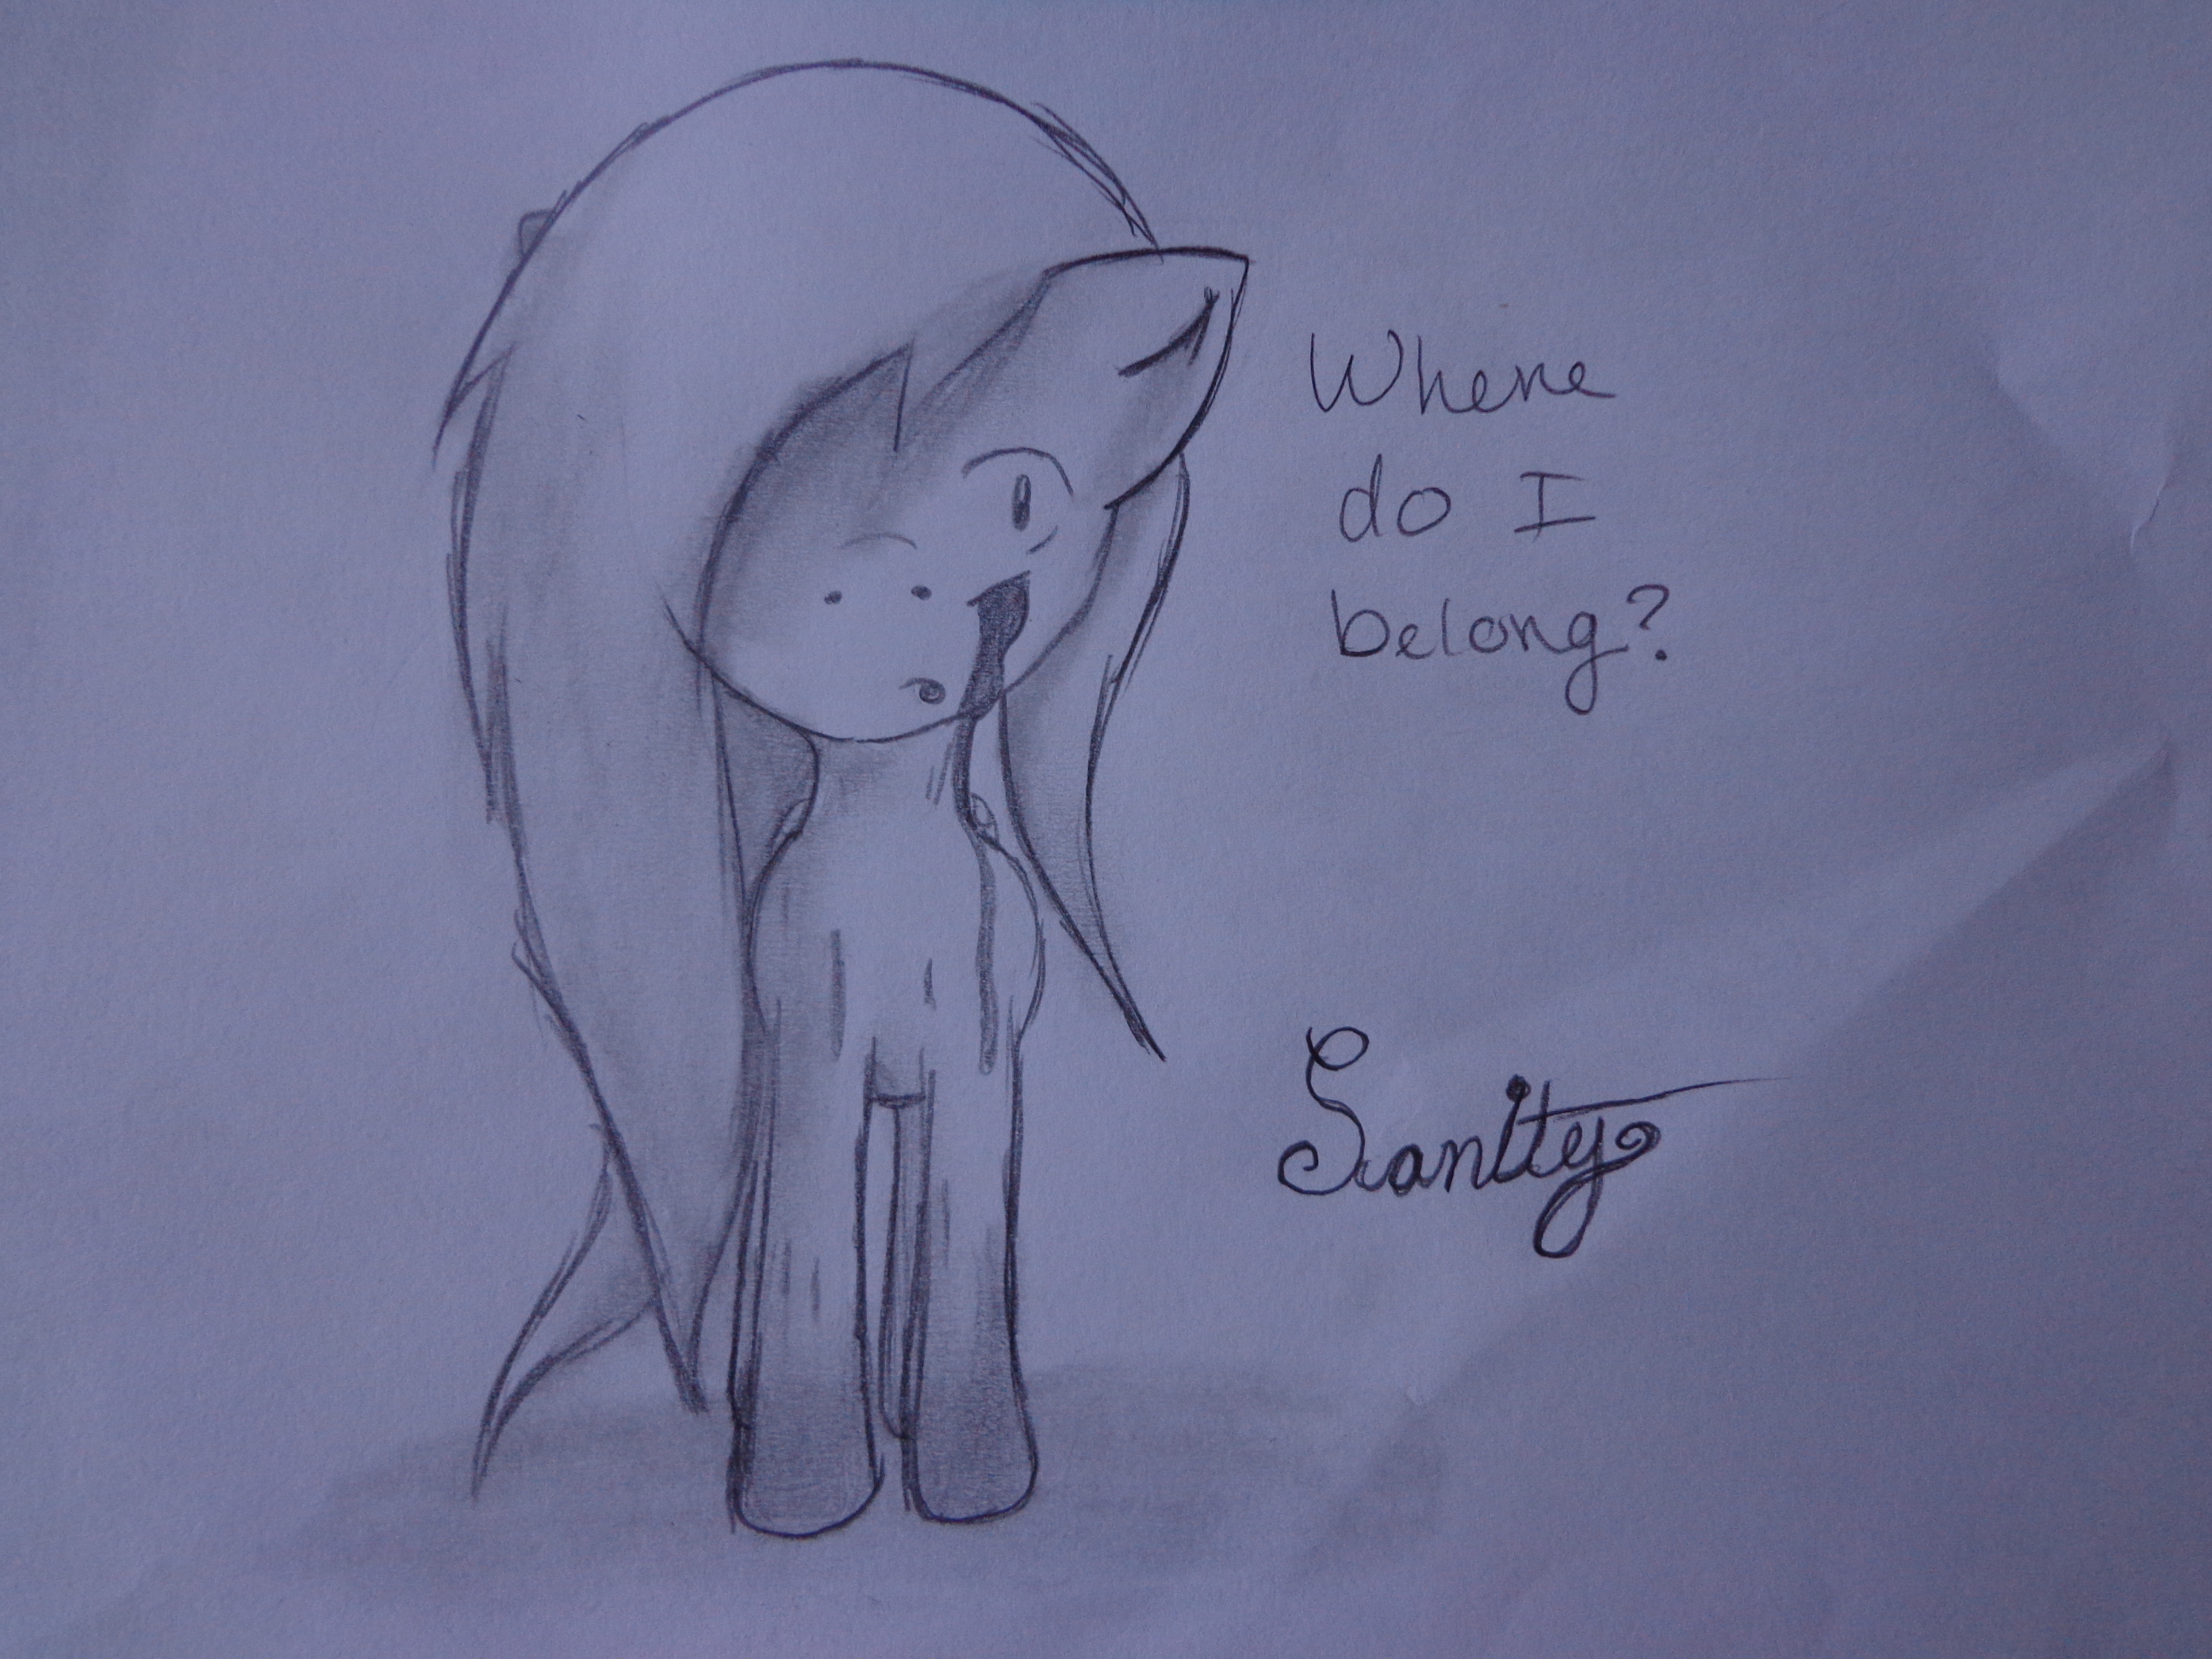 Where
do I
belong?
Sanity